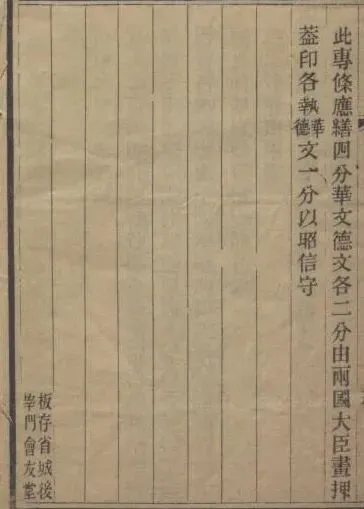 此專條應繕四分華文德文各二分由兩國大臣畫押
蓋印各執華德文一分以昭信守
板存省城後
宰門會友堂